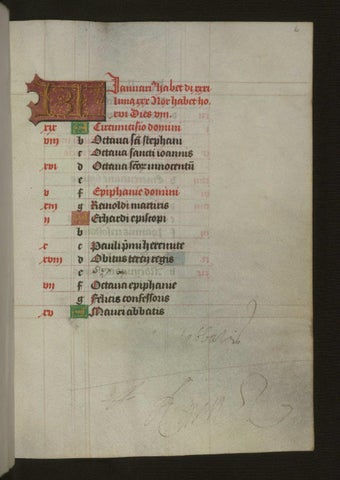 6
KL Januari⁹ habet di xxxi
luna xxx Nox habet ho.
xvi Dies viii.
xix A Circumcisio domini
viii b Octava scī stephani
c Octava sancti ioannis
xvi d Octava scōr innocentū
e
v f Epiphanie domini
xiii g Reinoldi martiris
ii A Erhardi episcopi
b
x c Pauli p̄mi heremite
xviii d Obitus tercii regis
e
vii f Octava epiphanie
g Felicis confessoris
xv A Mauri abbatis